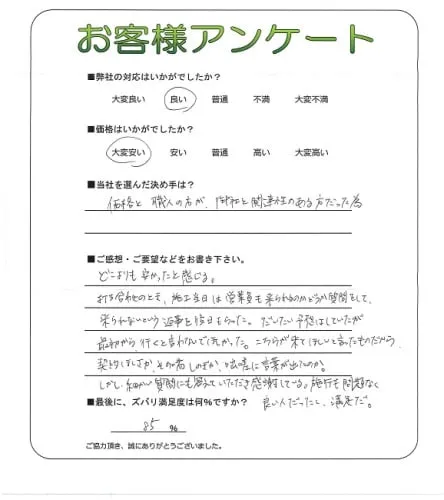 お客様アンケート
■弊社の対応はいかがでしたか？
大変良い 良い 普通 不満 大変不満
■価格はいかがでしたか？
大変安い 安い 普通 高い 大変高い
■当社を選んだ決め手は？
価格と 職人の方が、 関連性のある方だった為
■ご感想・ご要望などをお書き下さい。
どこよりも安かったと感じる。
打ち合わせのとき、施工当日は営業員も来られるのかどうか質問をして、
来られないという返事を もらった。だいたい予想はしていたが
最初から行くと言わないでほしかった。こちらが来てほしいと言ったものだから、
契約ほしさか、その場しのぎか、咄嗟に言葉が出たのか。
しかし、細かい質問にも答えていただき感謝している。施行も問題なく
■最後に、ズバリ満足度は何%ですか？ 良い人だったし、満足だ。
85 %
ご協力頂き、誠にありがとうございました。